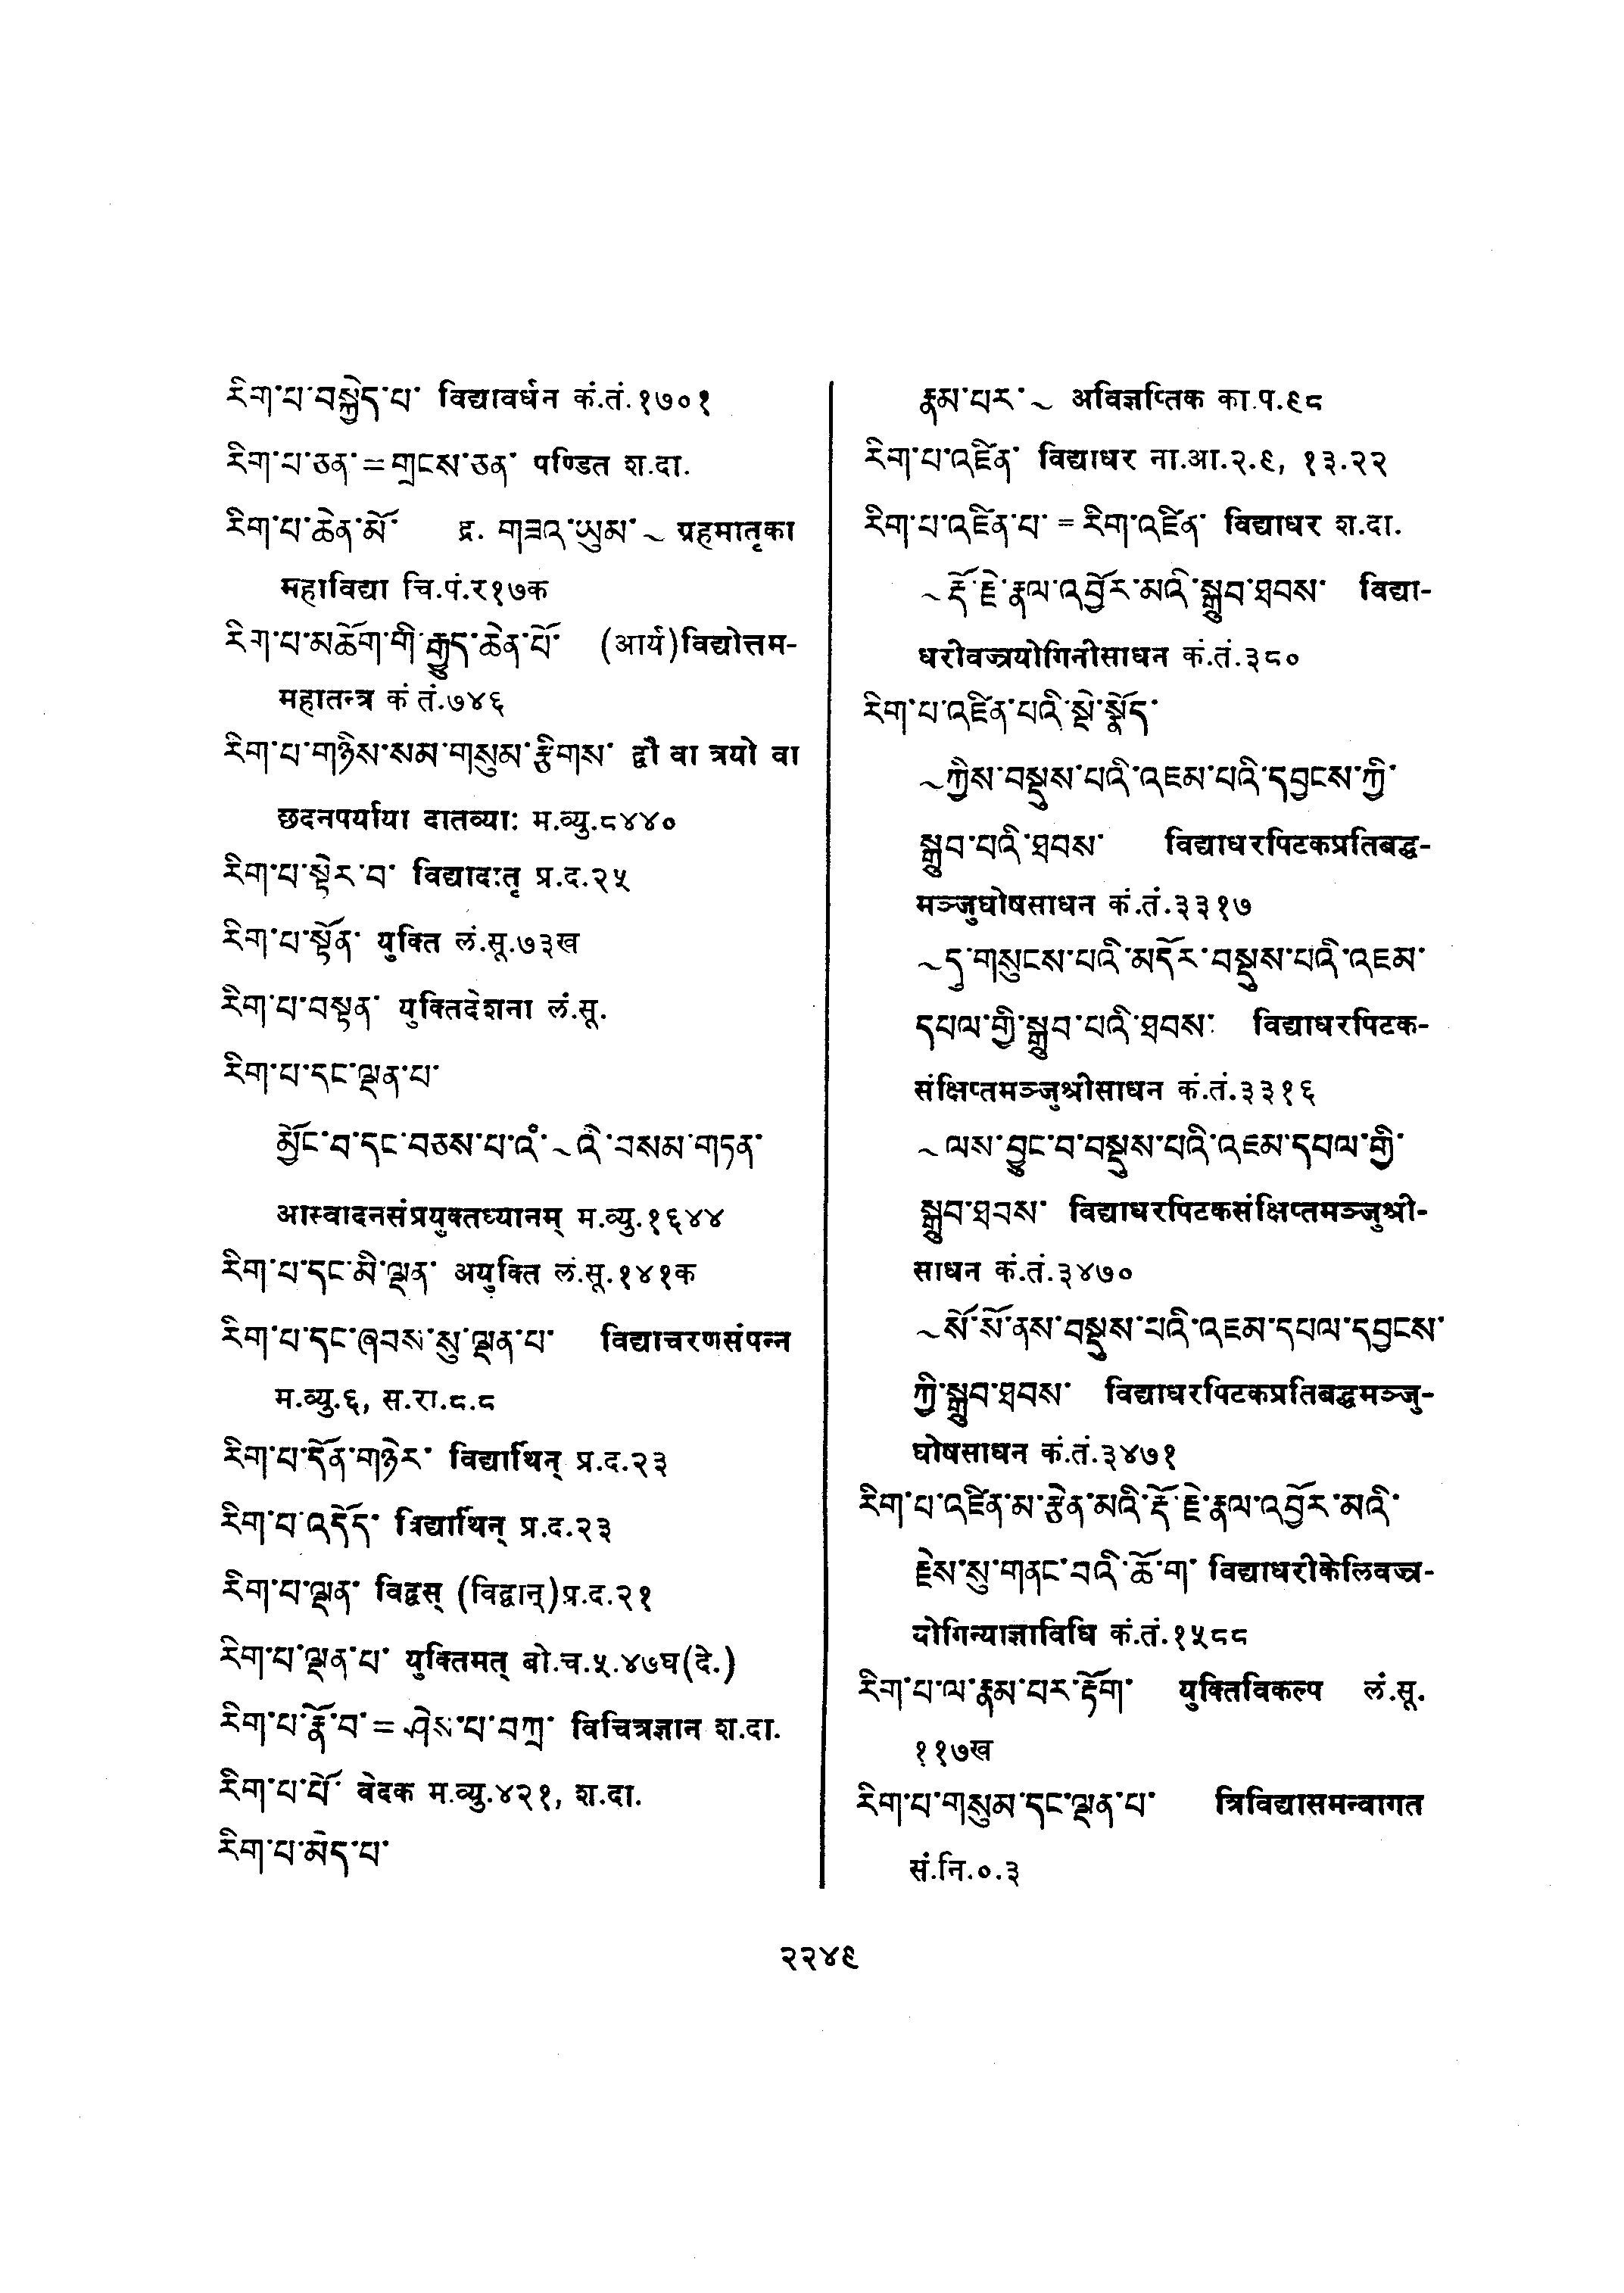 རིག་པ་བསྐྱེད་པ་ विद्यावर्धन कं.तं.१७०१
རིག་པ་ཅན་=གྲངས་ཅན་ पण्डित श.दा.
རིག་པ་ཆེན་མོ་ द्र. གཟའ་ཡུམ་~ ग्रहमातृका
महाविद्या चि.पं.र१७क
རིག་པ་མཆོག་གི་རྒྱུད་ཆེན་པོ་ (आर्य)विद्योत्तम-
महातन्त्र कं तं.७४६
རིག་པ་གཉིས་སམ་གསུམ་རྩིགས་ द्वौ वा त्रयो वा
छदनपर्याया दातव्याः म.व्यु.८४४०
རིག་པ་སྟེར་བ་ विद्यादःतृ प्र.द.२५
རིག་པ་སྟོན་ युक्ति लं.सू.७३ख
རིག་པ་བསྟན་ युक्तिदेशना लं.सू.
རིག་པ་དང་ལྡན་པ་
མྱོང་བ་དང་བཅས་པ་འཾ་~འི་བསམ་གཏན་
आस्वादनसंप्रयुक्तध्यानम् म.व्यु.१६४४
རིག་པ་དང་མི་ལྡན་ अयुक्ति लं.सू.१४१क
རིག་པ་དང་ཞབས་སུ་ལྡན་པ་ विद्याचरणसंपन्न
म.व्यु.६, स.रा.८.८
རིག་པ་དོན་གཉེར་ विद्यार्थिन् प्र.द.२३
རིག་པ་འདོད་ त्रिद्यार्थिन् प्र.द.२३
རིག་པ་ལྡན་ विद्वस् (विद्वान्)प्र.द.२१
རིག་པ་ལྡན་པ་ युक्तिमत् बो.च.५.४७घ(दे.)
རིག་པ་རྣོ་བ་=ཤེས་པ་བཀྲ་ विचित्रज्ञान श.दा.
རིག་པ་པོ་ वेदक म.व्यु.४२१, श.दा.
རིག་པ་མེད་པ་
རྣམ་པར་~ अविज्ञप्तिक का.प.९८
རིག་པ་འཛིན་ विद्याधर ना.आ.२.९, १३.२२
རིག་པ་འཛིན་པ་=རིག་འཛིན་ विद्याधर श.दा.
~རྡོ་རྗེ་རྣལ་འབྱོར་མའི་སྒྲུབ་ཐབས་ विद्या-
धरीवज्रयोगिनीसाधन कं.तं.३८०
རིག་པ་འཛིན་པའི་སྡེ་སྣོད་
~ཀྱིས་བསྡུས་པའི་འཇམ་པའི་དབྱངས་ཀྱི་
སྒྲུབ་པའི་ཐབས་ विद्याधरपिटकप्रतिबद्ध-
मञ्जुघोषसाधन कं.तं.३३१७
~དུ་གསུངས་པའི་མདོར་བསྡུས་པའི་འཇམ་
དཔལ་གྱི་སྒྲུབ་པའི་ཐབས་ विद्याधरपिटक-
संक्षिप्तमञ्जुश्रीसाधन कं.तं.३३१६
~ལས་བྱུང་བ་བསྡུས་པའི་འཇམ་དཔལ་གྱི་
སྒྲུབ་ཐབས་ विद्याधरपिटकसंक्षिप्तमञ्जुश्री-
साधन कं.तं.३४७०
~སོ་སོ་ནས་བསྡུས་པའི་འཇམ་དཔལ་དབྱངས་
ཀྱི་སྒྲུབ་ཐབས་ विद्याधरपिटकप्रतिबद्धमञ्जु-
घोषसाधन कं.तं.३४७१
རིག་པ་འཛིན་མ་རྩེན་མའི་རྡོ་རྗེ་རྣལ་འབྱོར་མའི་
རྗེས་སུ་གནང་བའི་ཆོ་ག་ विद्याधरीकेलिवज्र-
योगिन्याज्ञाविधि कं.तं.१५८८
རིག་པ་ལ་རྣམ་པར་རྟོག་ युक्तिविकल्प लं.सू.
११७ख
རིག་པ་གསུམ་དང་ལྡན་པ་ त्रिविद्यासमन्वागत
सं.नि.०.३
२२४९